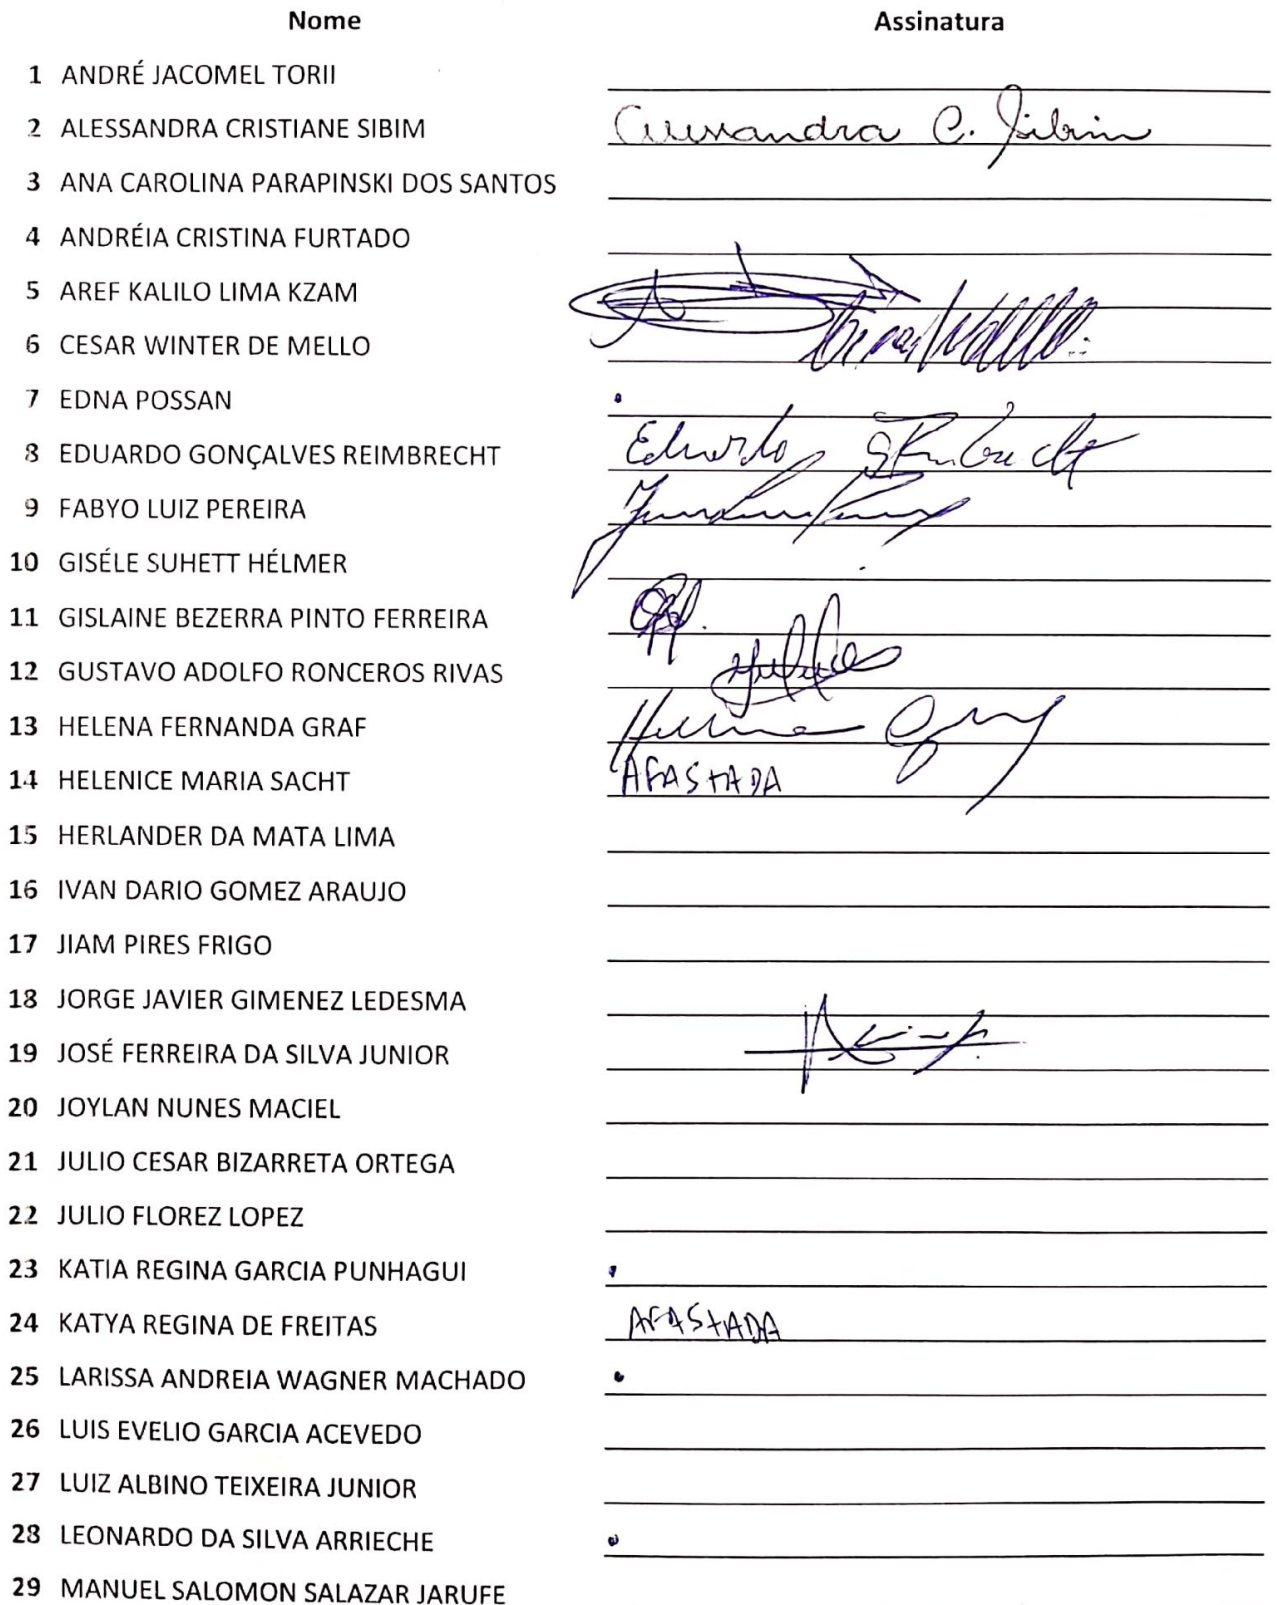 Nome Assinatura
1 ANDRÉ JACOMEL TORII
2 ALESSANDRA CRISTIANE SIBIM Alessandra C. Sibim
3 ANA CAROLINA PARAPINSKI DOS SANTOS
4 ANDRÉIA CRISTINA FURTADO
5 AREF KALILO LIMA KZAM
6 CESAR WINTER DE MELLO
7 EDNA POSSAN
8 EDUARDO GONÇALVES REIMBRECHT Eduardo G Reimbrecht
9 FABYO LUIZ PEREIRA
10 GISÉLE SUHETT HÉLMER
11 GISLAINE BEZERRA PINTO FERREIRA
12 GUSTAVO ADOLFO RONCEROS RIVAS
13 HELENA FERNANDA GRAF Helena Graf
14 HELENICE MARIA SACHT AFASTADA
15 HERLANDER DA MATA LIMA
16 IVAN DARIO GOMEZ ARAUJO
17 JIAM PIRES FRIGO
18 JORGE JAVIER GIMENEZ LEDESMA
19 JOSÉ FERREIRA DA SILVA JUNIOR
20 JOYLAN NUNES MACIEL
21 JULIO CESAR BIZARRETA ORTEGA
22 JULIO FLOREZ LOPEZ
23 KATIA REGINA GARCIA PUNHAGUI
24 KATYA REGINA DE FREITAS AFASTADA
25 LARISSA ANDREIA WAGNER MACHADO
26 LUIS EVELIO GARCIA ACEVEDO
27 LUIZ ALBINO TEIXEIRA JUNIOR
28 LEONARDO DA SILVA ARRIECHE
29 MANUEL SALOMON SALAZAR JARUFE